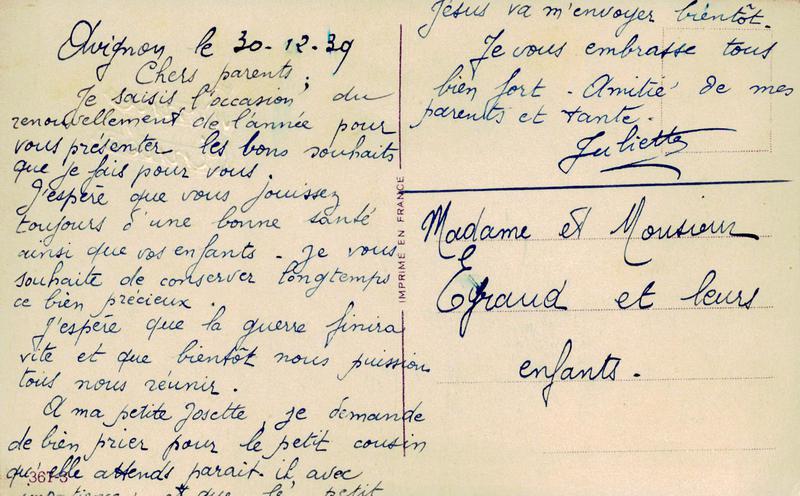 Avignon le 30-12-39
Chers parents,
Je saisis l'occasion du
renouvellement de l'année pour
vous présenter les bons souhaits
que je fais pour vous.
J'espère que vous jouissez
toujours d'une bonne santé
ainsi que vos enfants - Je vous
souhaite de conserver longtemps
ce bien précieux.
J'espère que la guerre finira
vite et que bientôt nous puission
tous nous réunir.
A ma petite Josette, je demande
de bien prier pour le petit cousin
qu'elle attends parait-il avec
que le petit
Jésus va m'envoyer bientôt.
Je vous embrasse tous
bien fort - Amitié de mes
parents et tante.
Juliette
Madame et Monsieur
Eyraud et leurs
enfants.
IMPRIMÉ EN FRANCE
361-3